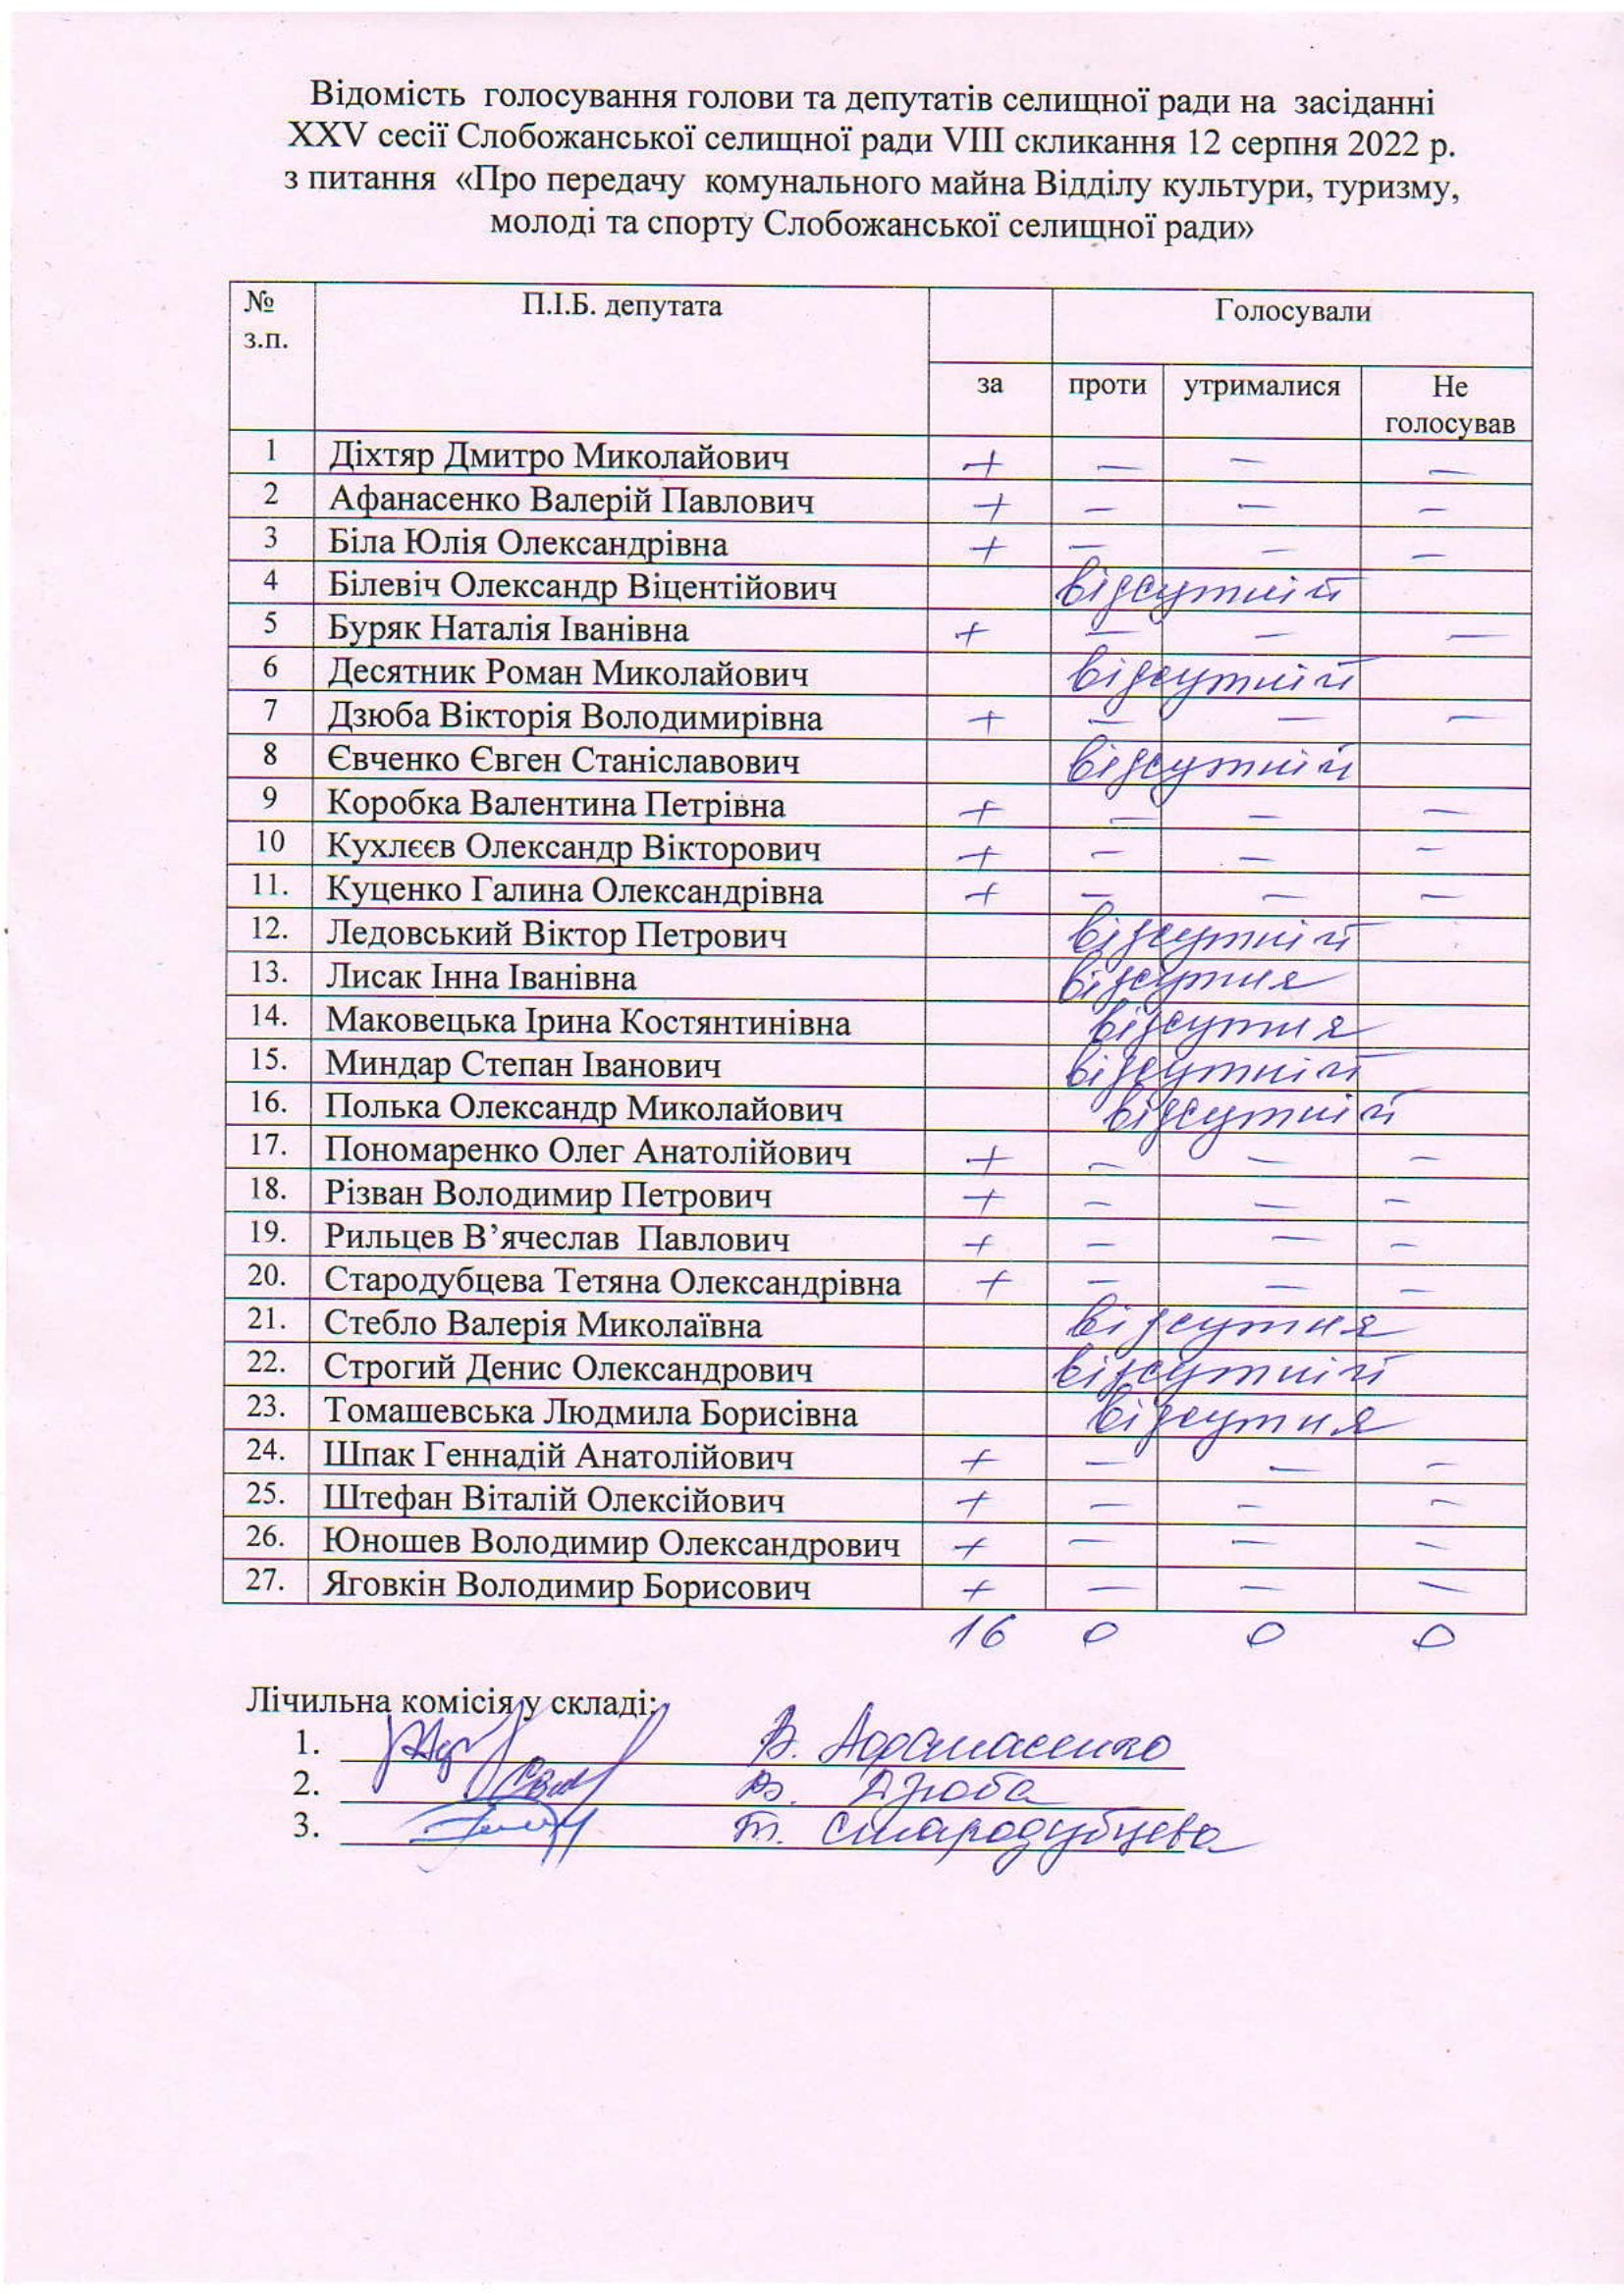 Відомість голосування голови та депутатів селищної ради на засіданні
XXV сесії Слобожанської селищної ради VIII скликання 12 серпня 2022 р.
з питання «Про передачу комунального майна Відділу культури, туризму,
молоді та спорту Слобожанської селищної ради»
№ з.п. П.І.Б. депутата Голосували
за проти утрималися Не голосував
1 Діхтяр Дмитро Миколайович + — — —
2 Афанасенко Валерій Павлович + — — —
3 Біла Юлія Олександрівна + — — —
4 Білевіч Олександр Віцентійович відсутній
5 Буряк Наталія Іванівна + — — —
6 Десятник Роман Миколайович відсутній
7 Дзюба Вікторія Володимирівна + — — —
8 Євченко Євген Станіславович відсутній
9 Коробка Валентина Петрівна + — — —
10 Кухлєєв Олександр Вікторович + — — —
11. Куценко Галина Олександрівна + — — —
12. Ледовський Віктор Петрович відсутній
13. Лисак Інна Іванівна відсутня
14. Маковецька Ірина Костянтинівна відсутня
15. Миндар Степан Іванович відсутній
16. Полька Олександр Миколайович відсутній
17. Пономаренко Олег Анатолійович + — — —
18. Різван Володимир Петрович + — — —
19. Рильцев В’ячеслав Павлович + — — —
20. Стародубцева Тетяна Олександрівна + — — —
21. Стебло Валерія Миколаївна відсутня
22. Строгий Денис Олександрович відсутній
23. Томашевська Людмила Борисівна відсутня
24. Шпак Геннадій Анатолійович + — — —
25. Штефан Віталій Олексійович + — — —
26. Юношев Володимир Олександрович + — — —
27. Яговкін Володимир Борисович + — — —
16 0 0 0
Лічильна комісія у складі:
1. В. Афанасенко
2. В. Дзюба
3. Т. Стародубцева